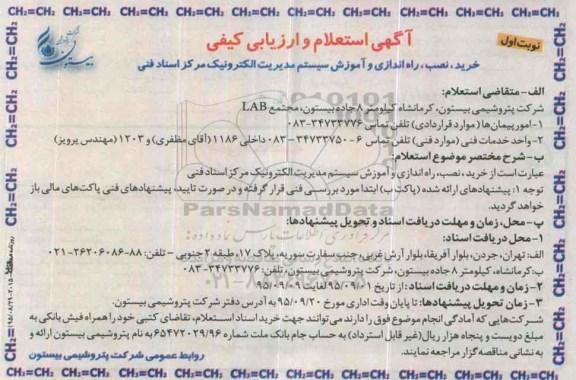 CH2=CH2 CH2=CH2 CH2=CH2 CH2=CH2 CH2=CH2 CH2=CH2 CH2=CH2 CH2=CH2 CH2=CH2
نوبت اول
آگهی استعلام و ارزیابی کیفی
خرید، نصب، راه اندازی و آموزش سیستم مدیریت الکترونیک مرکز اسناد فنی
بیستون
الف- متقاضی استعلام:
شرکت پتروشیمی بیستون، کرمانشاه کیلومتر ۸ جاده بیستون، مجتمع LAB
۱- امور پیمان‌ها (موارد قراردادی) تلفن تماس ۳۴۷۳۳۷۷۶-۰۸۳
۲- واحد خدمات فنی (موارد فنی) تلفن تماس ۶ - ۳۴۷۳۳۷۵۰-۰۸۳ داخلی ۱۱۸۶ (آقای مظفری) و ۱۲۰۳ (مهندس پرویز)
ب- شرح مختصر موضوع استعلام:
عبارت است از خرید، نصب، راه اندازی و آموزش سیستم مدیریت الکترونیک مرکز اسناد فنی
توجه ۱: پیشنهادهای ارائه شده (پاکت ب) ابتدا مورد بررسی فنی قرار گرفته و در صورت تایید، پیشنهادهای فنی پاکت‌های مالی باز خواهد گردید.
پ- محل، زمان و مهلت دریافت اسناد و تحویل پیشنهادها:
ParsNamadData
۱- محل دریافت اسناد:
الف: تهران، جردن، بلوار آفریقا، بلوار آرش غربی، جنب سفارت سوریه، پلاک ۱۷، طبقه ۲ جنوبی - تلفن: ۸۸-۲۶۲۰۶۰۸۶-۰۲۱
ب: کرمانشاه، کیلومتر ۸ جاده بیستون، شرکت پتروشیمی بیستون، تلفن: ۳۴۷۳۳۷۷۶-۰۸۳
۲- زمان و مهلت دریافت اسناد: از تاریخ ۹۵/۰۹/۰۱ لغایت ۹۵/۰۹/۰۹
۳- زمان تحویل پیشنهادها: تا پایان وقت اداری مورخ ۹۵/۰۹/۲۰ به آدرس دفتر شرکت پتروشیمی بیستون.
شرکت‌هایی که آمادگی انجام موضوع فوق را دارند می‌توانند جهت خرید اسناد استعلام، تقاضای کتبی خود را همراه فیش بانکی به
مبلغ دویست و پنجاه هزار ریال (غیر قابل استرداد) به حساب جام بانک ملت شماره ۶۵۴۷۲۰۲۹/۹۶ به نام پتروشیمی بیستون ارائه و
به نشانی مناقصه‌گزار مراجعه نمایند.
روابط عمومی شرکت پتروشیمی بیستون
CH2=CH2 CH2=CH2 CH2=CH2 CH2=CH2 CH2=CH2 CH2=CH2 CH2=CH2 CH2=CH2 CH2=CH2